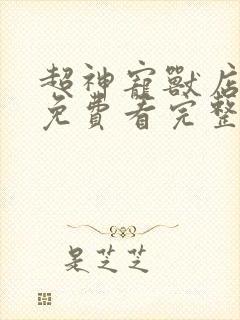 超神寵獸店
免費看完整
是芝芝